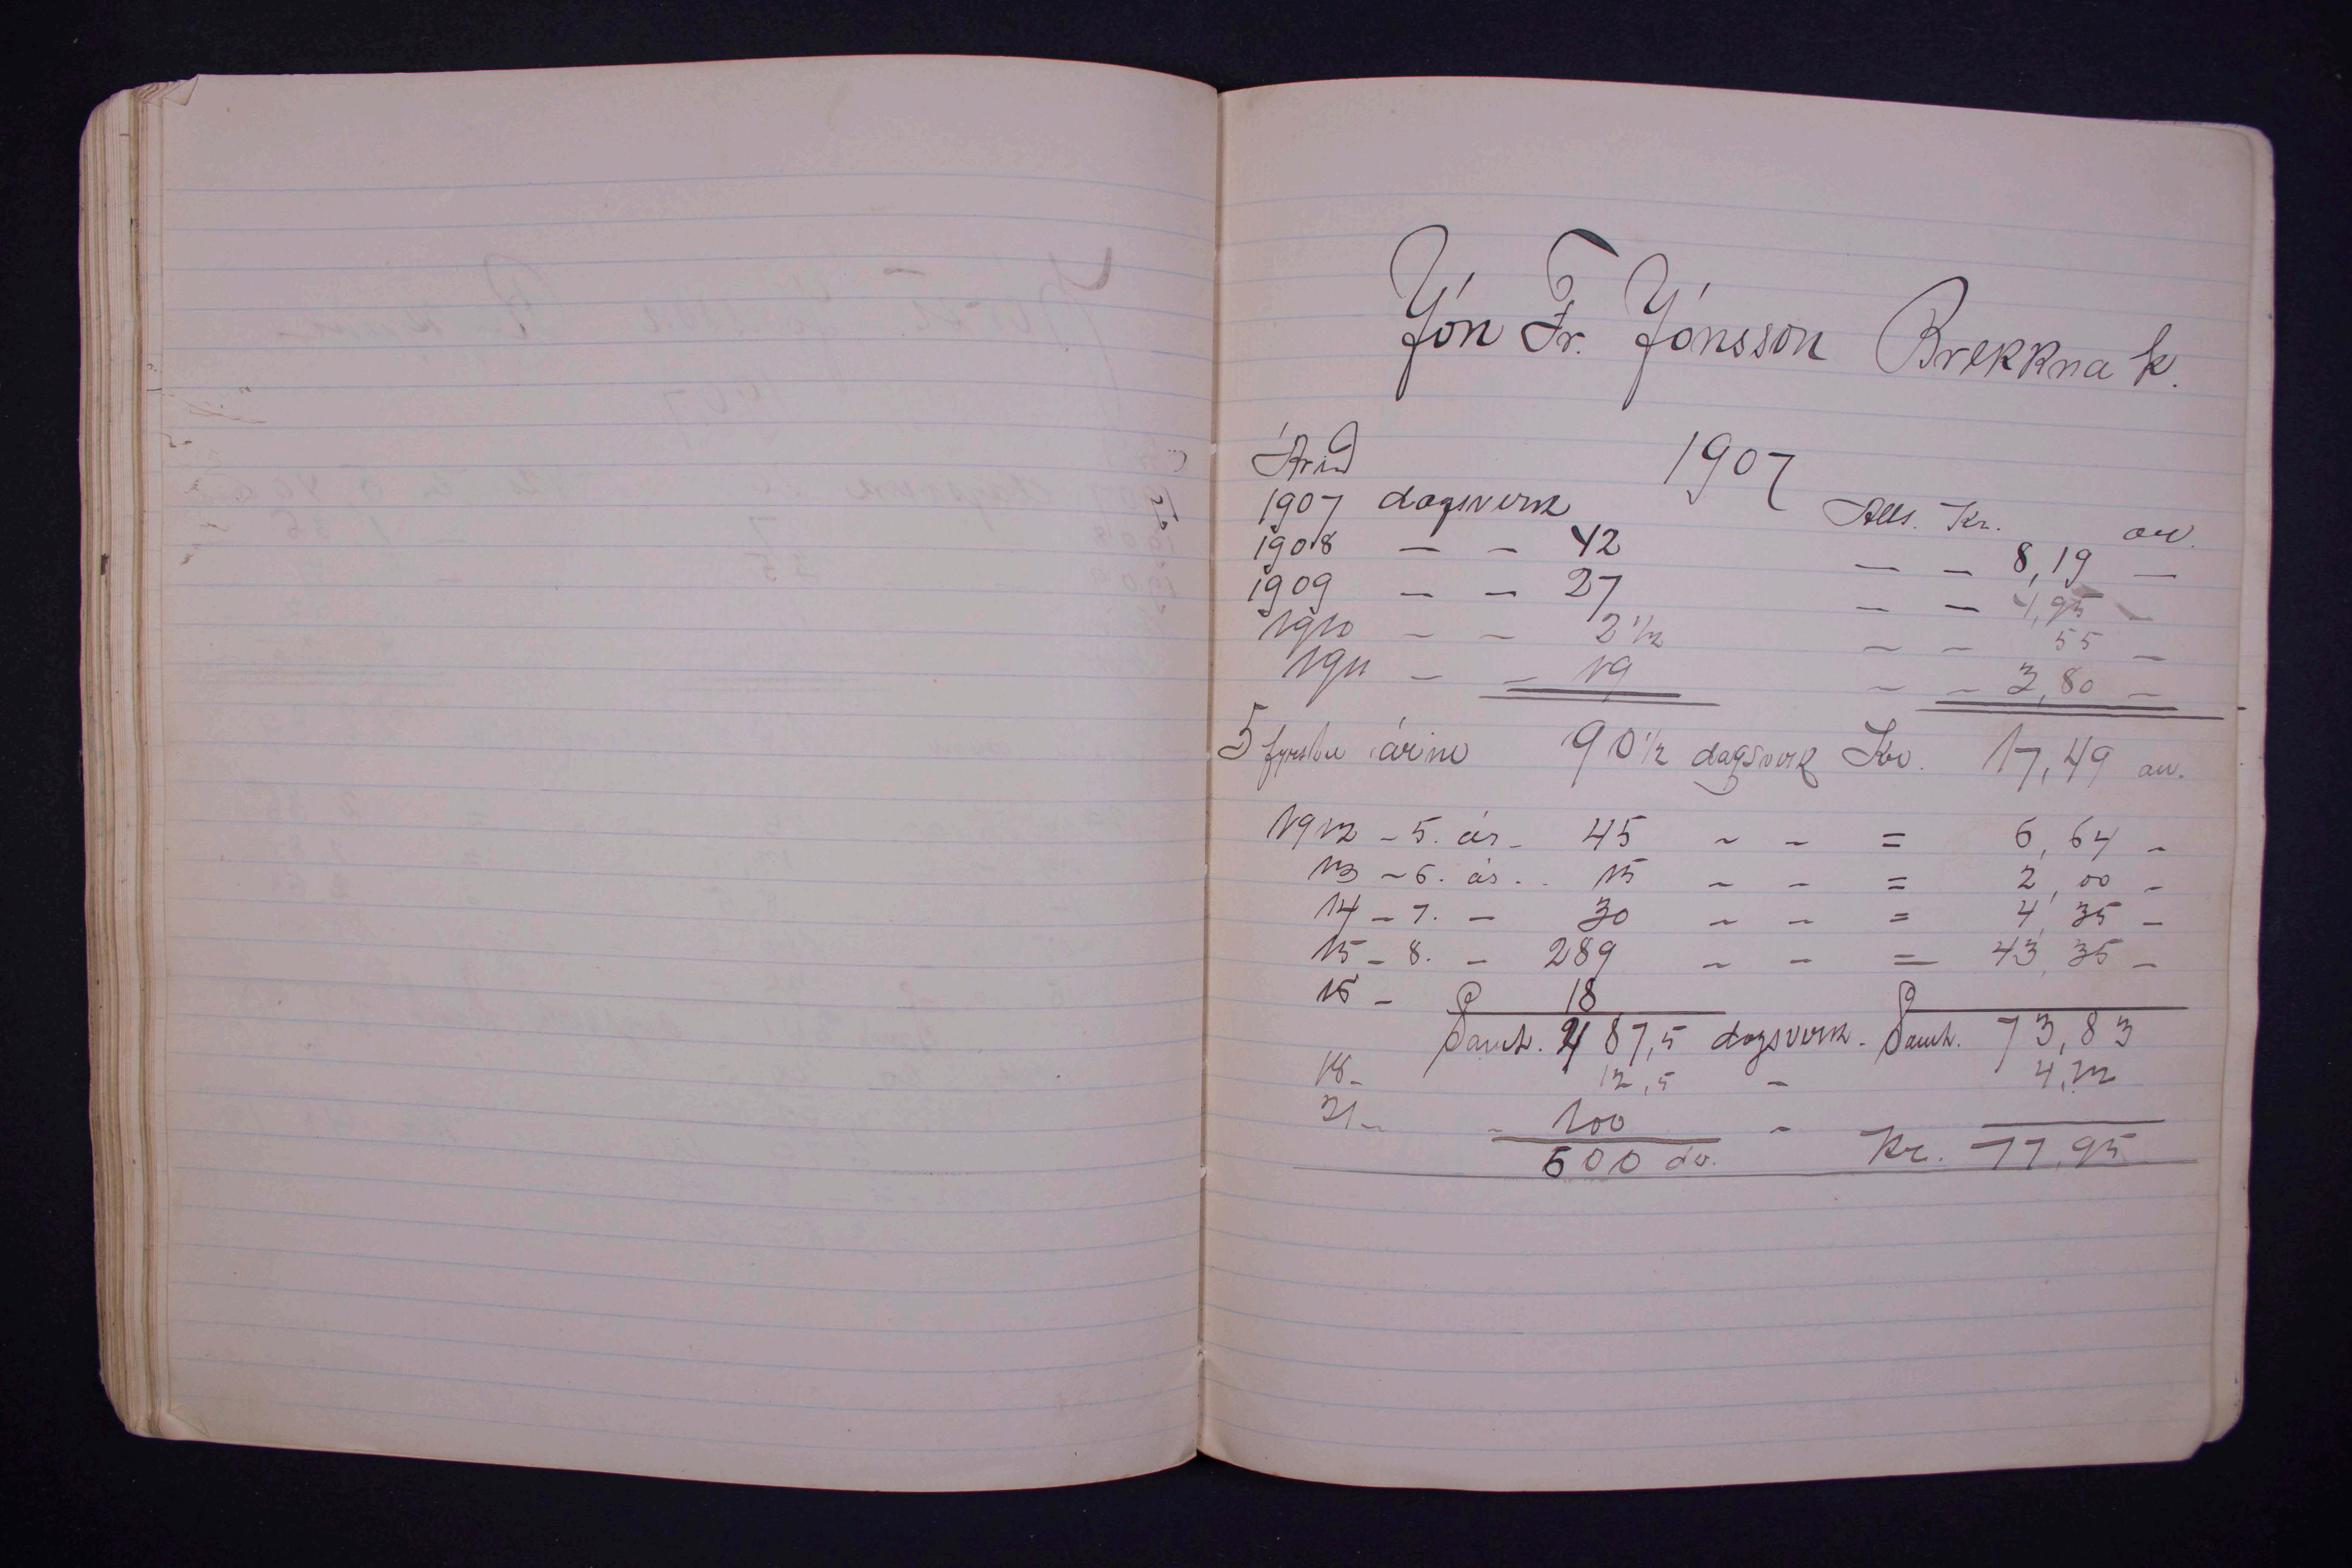 Jón Fr. Jónsson Brekkna k.
Árið 1907
1907 dagsverk Alls. Kr. au.
1908 — — 42 — — 8,19 —
1909 — — 27 — — 4,95 —
1910 — — 2 1/2 — — 55 —
1911 — — 19 — — 3,80 —
5 fyrstu árin 90 1/2 dagsverk Kr. 17,49 au.
1912 - 5. ár - 45 - - = 6,64 -
13 - 6. ár - 15 - - = 2,00 -
14 - 7. - 30 - - = 4,35 -
15 - 8. - 289 - - = 43,35 -
16 - 18
Samt. 487,5 dagsverk. Samt. 73,83
18 - 12,5 - 4,12
21 - - 100 -
600 dv. Kr. 77,95